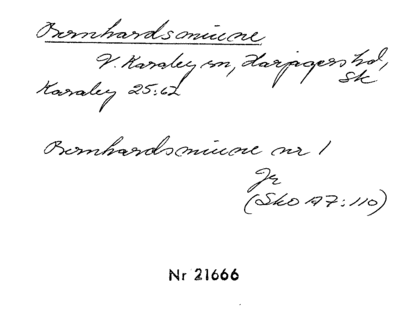 Bernhardsminne
V. Karaby sn, Harjagers hd,
Sk
Karaby 25:62
Bernhardsminne nr 1
Jr
(Sko A7:110)
Nr 21666